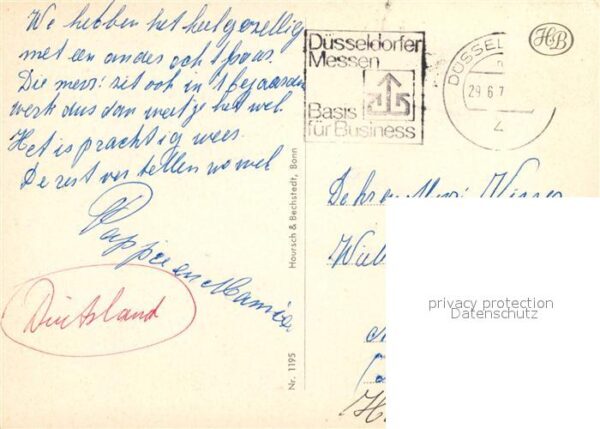 We hebben het heel gezellig
met een ander echtpaar.
Die mevr: zit ook in 't bejaarden
werk dus dan weet je het wel.
Het is prachtig weer.
De rest vertellen we wel
Pappie en Mamie
Duitsland
Düsseldorfer
Messen
Basis
für Business
DÜSSEL
29.6.7
4
HB
Hoursch & Bechstedt, Bonn
Nr. 1195
De hr en Mevr:
privacy protection
Datenschutz